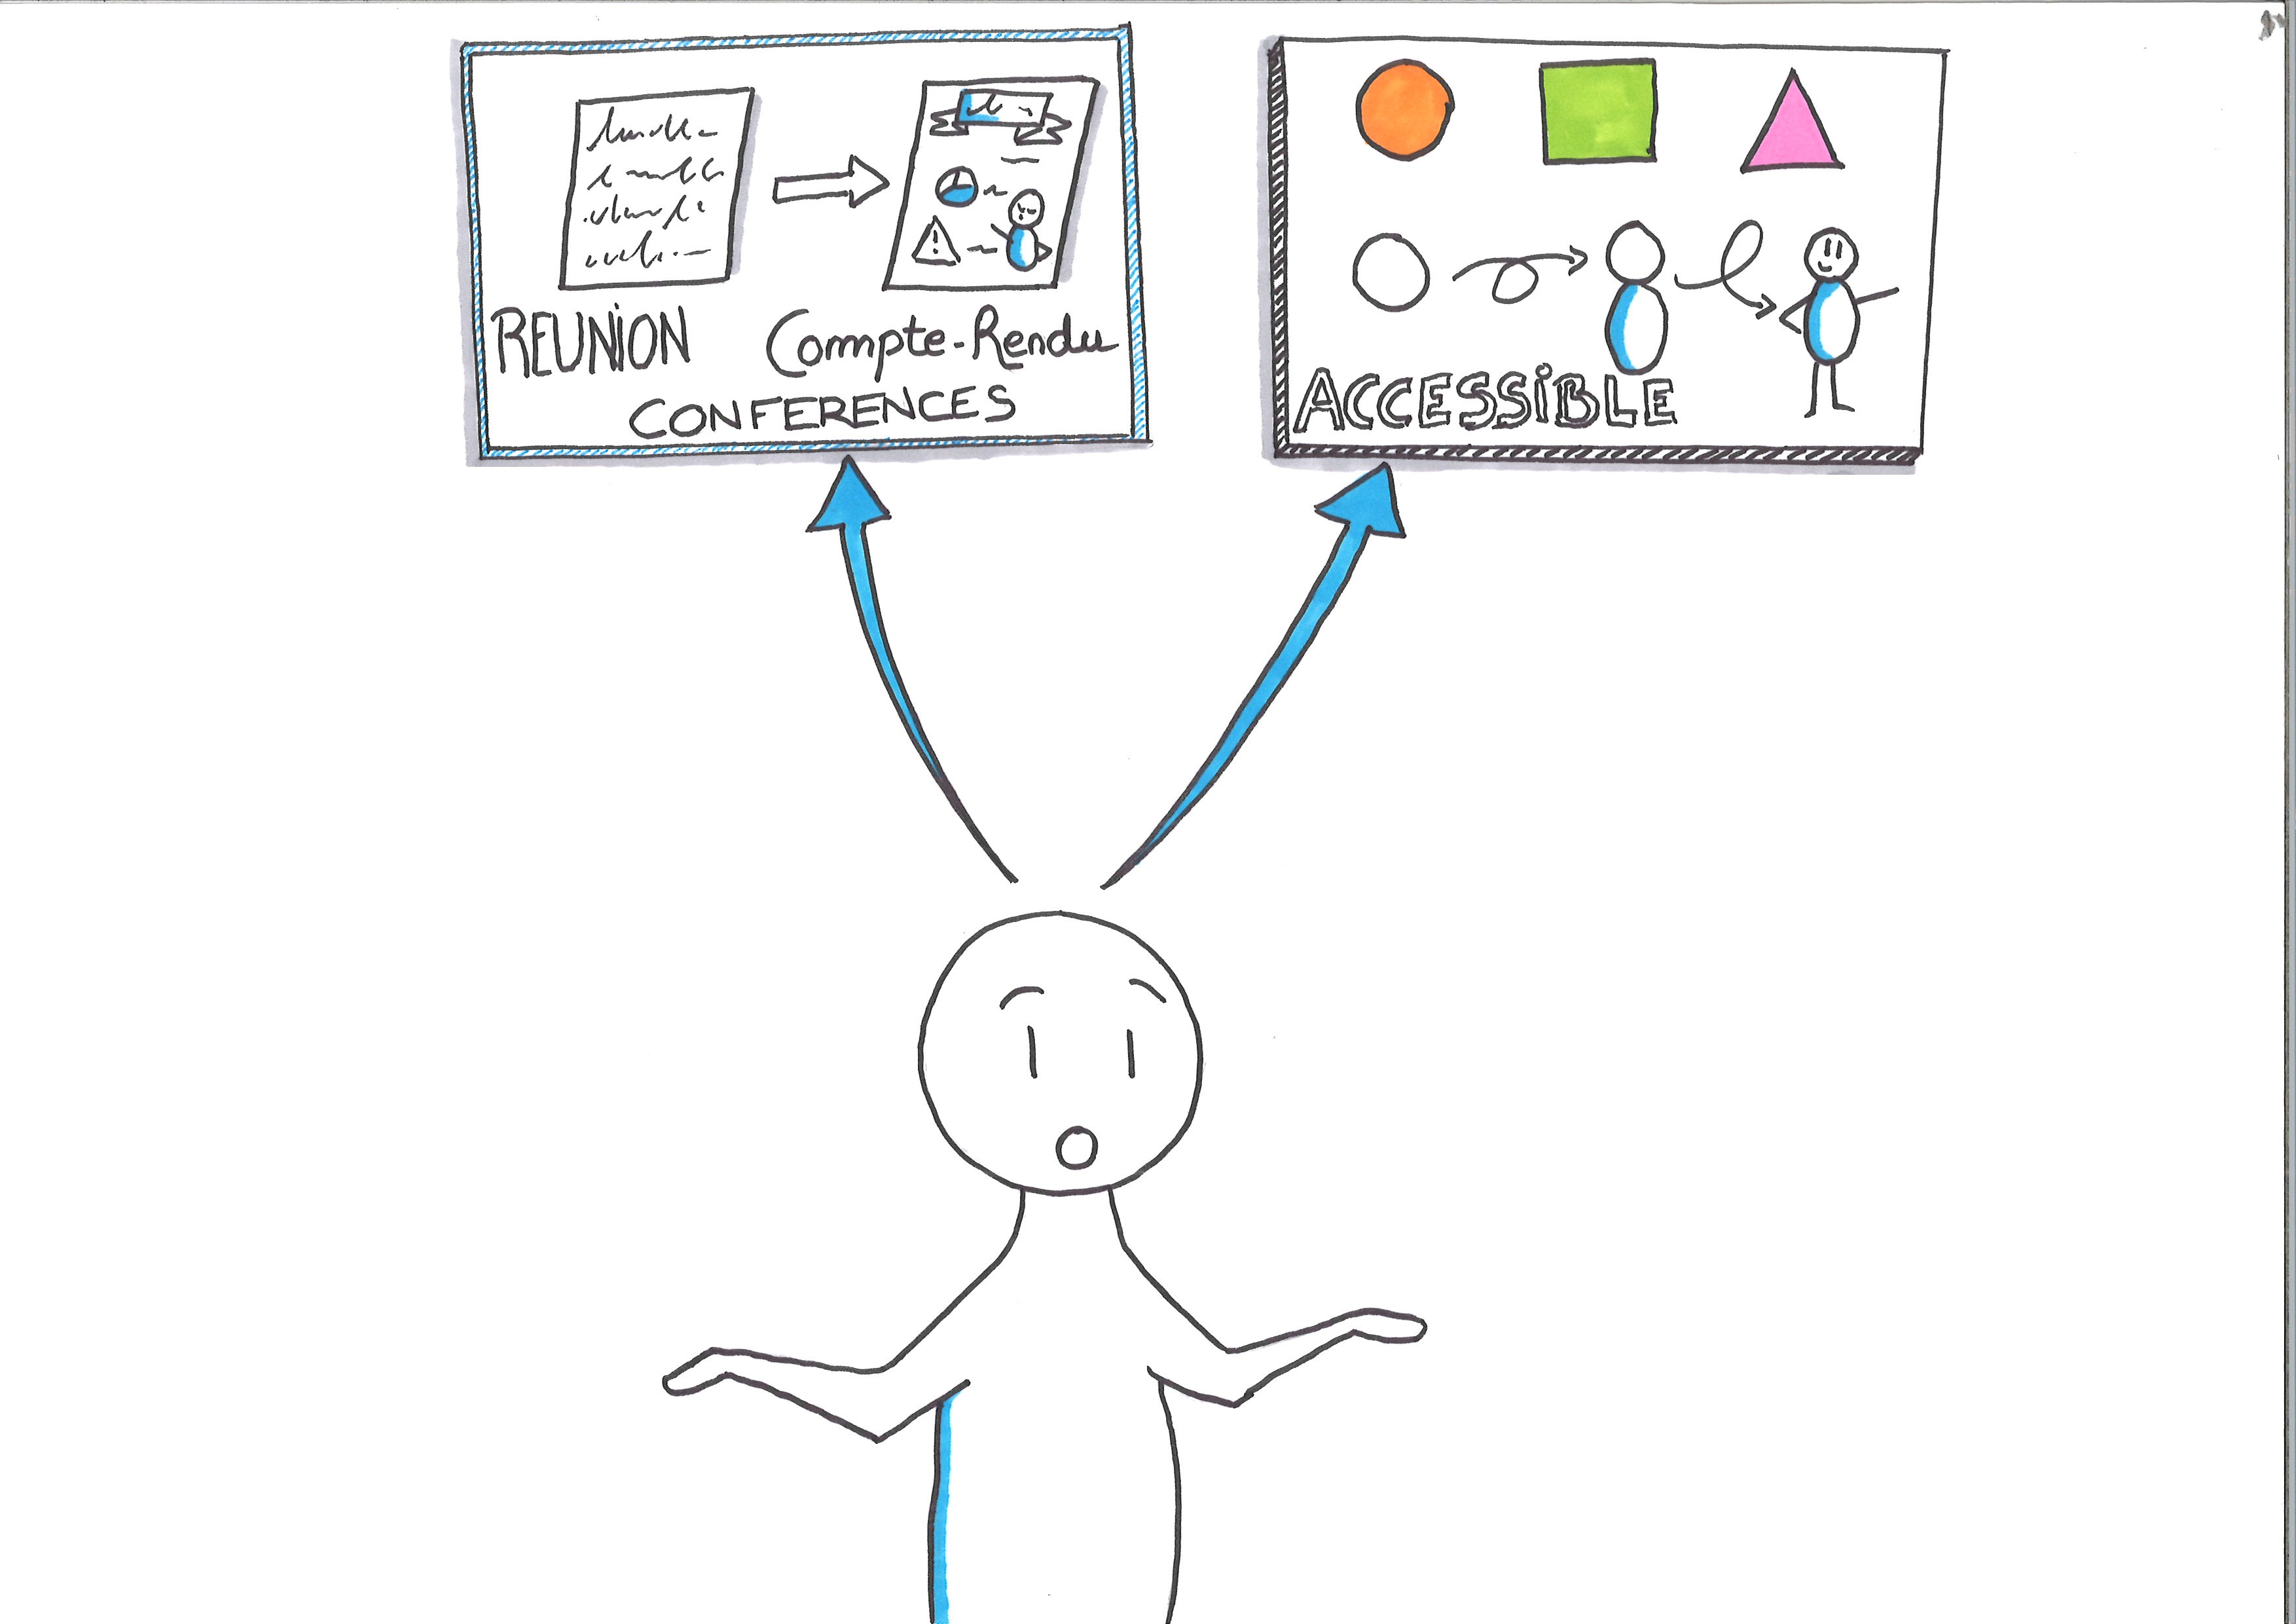 REUNION Compte-Rendu
CONFERENCES
ACCESSIBLE